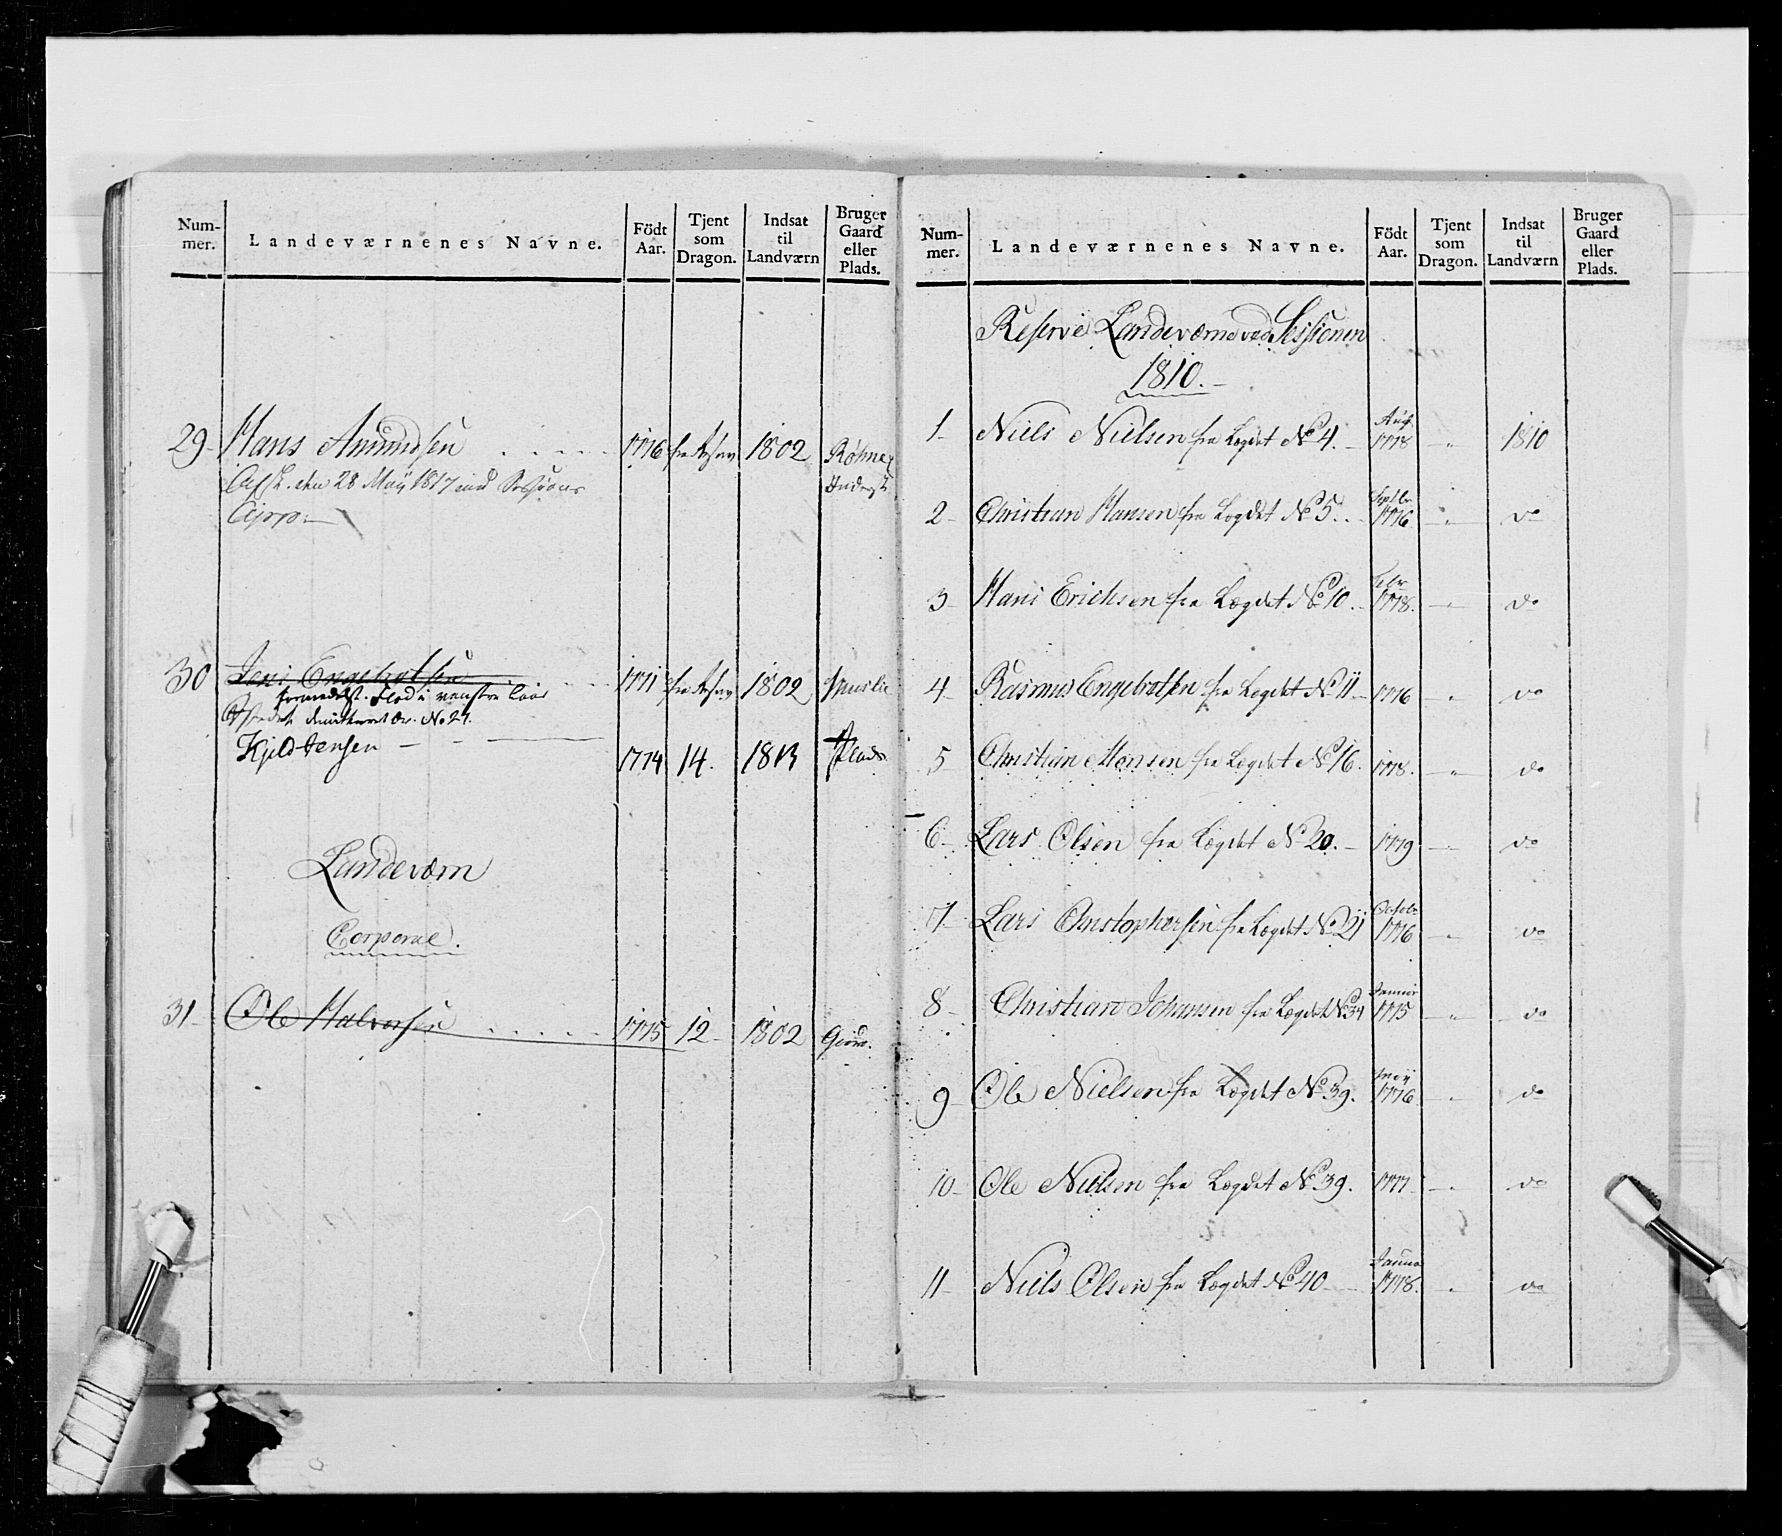 Num-
mer.
Landeværnenes Navne.
Födt
Aar.
Tjent
som
Dragon.
Indsat
til
Landværn
Bruger
Gaard
eller
Plads.
29 Hans Amundsen . . . . . 1776 1802
Afsk. den 28 May 1817 ved Sessions
App.
30 Jens Engebretsen 1771 1802
formedelst Flod i venstre
No 27.
Kjeld Jensen — 1774 14. 1813 Plads
Landeværn
Corporal.
31 Ole Halvorsen . . . . . 1775 12 1802
Num-
mer.
Landeværnenes Navne.
Födt
Aar.
Tjent
som
Dragon.
Indsat
til
Landværn
Bruger
Gaard
eller
Plads.
Reserve Landeværne ved Sessionen
1810.
1 Niels Nielsen fra Lægdet No 4. Aug. 1778 " 1810
2 Christian Hansen fra Lægdet No 5. Septbr 1776 " do
3 Hans Erichsen fra Lægdet No 10. Febr 1778. " do
4 Rasmus Engebretsen fra Lægdet No 11 1776 " do
5 Christian Monsen fra Lægdet No 16. 1778. " do
6 Lars Olsen fra Lægdet No 20. 1779 " do
7 Lars Christophersen fra Lægdet No 21 Octobr 1776 " do
8 Christian Johansen fra Lægdet No 34 Januar 1775 " do
9 Ole Nielsen fra Lægdet No 39. May 1776 " do
10 Ole Nielsen fra Lægdet No 39. 1777 " do
11 Niels Olsen fra Lægdet No 40 Januar 1778. " do